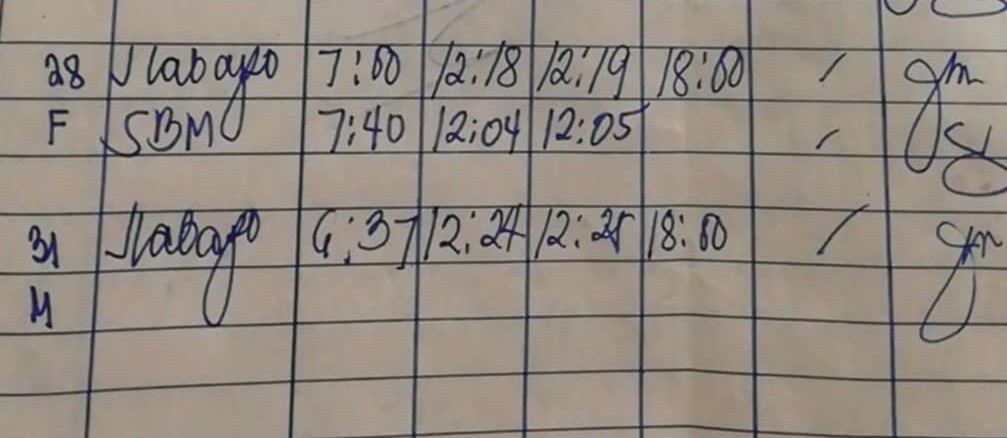 28 Jlabayo 7:00 12:18 12:19 18:00 /
F SBM 7:40 12:04 12:05 /
31 Jlabayo 6:37 12:24 12:25 18:00 /
M